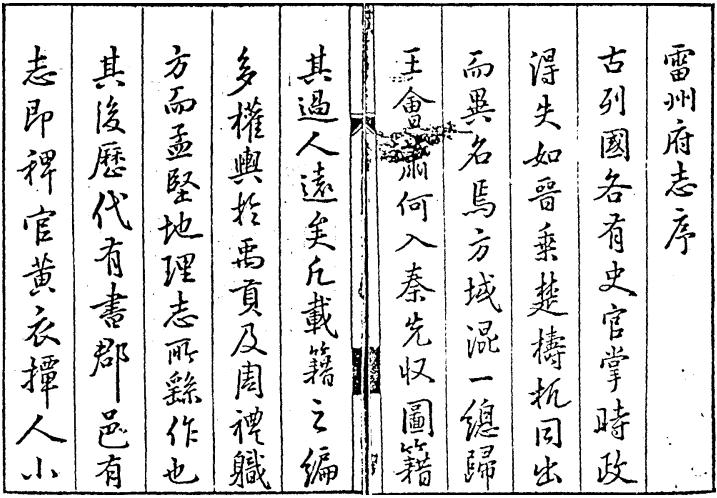 雷州府志序
古列國各有史官掌時政
得失如晉乗楚檮杌同出
而異名焉方域混一總歸
王會蕭何入秦先収圖籍
其過人遠矣凢載籍之編
多權輿扵禹貢及周禮職
方而孟堅地理志所繇作也
其後歷代有書郡邑有
志即稗官黄衣撢人小